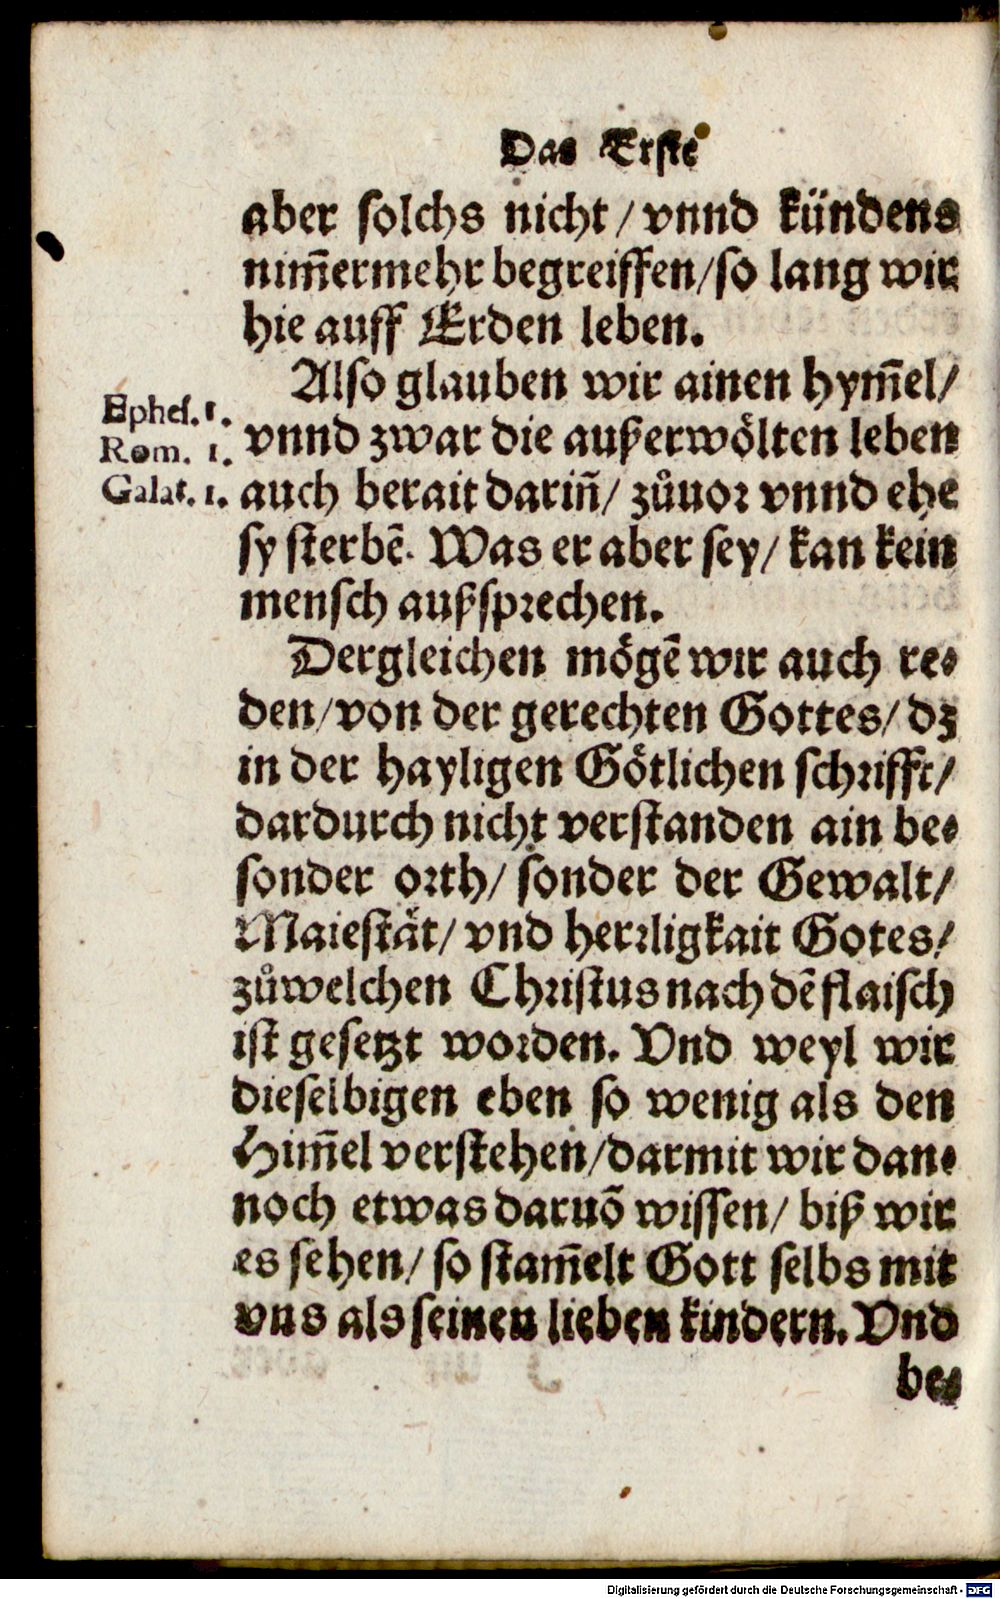 Das Erste
aber solchs nicht / vnnd kündens
nim̄ermehr begreiffen / so lang wir
hie auff Erden leben.
Also glauben wir ainen hym̄el /
Ephes. 1.
Rom. 1.
Galat. 1.
vnnd zwar die außerwölten leben
auch berait darin̄ / zůuor vnnd ehe
sy sterbē. Was er aber sey / kan kein
mensch außsprechen.
Dergleichen mögē wir auch re⸗
den / von der gerechten Gottes / dz
in der hayligen Götlichen schrifft /
dardurch nicht verstanden ain be⸗
sonder orth / sonder der Gewalt /
Maiestät / vnd herrligkait Gotes /
zůwelchen Christus nach dē flaisch
ist gesetzt worden. Vnd weyl wir
dieselbigen eben so wenig als den
Him̄el verstehen / darmit wir dan⸗
noch etwas daruō wissen / biß wir
es sehen / so stam̄elt Gott selbs mit
vns als seinen lieben kindern. Vnd
be⸗
Digitalisierung gefördert durch die Deutsche Forschungsgemeinschaft - DFG